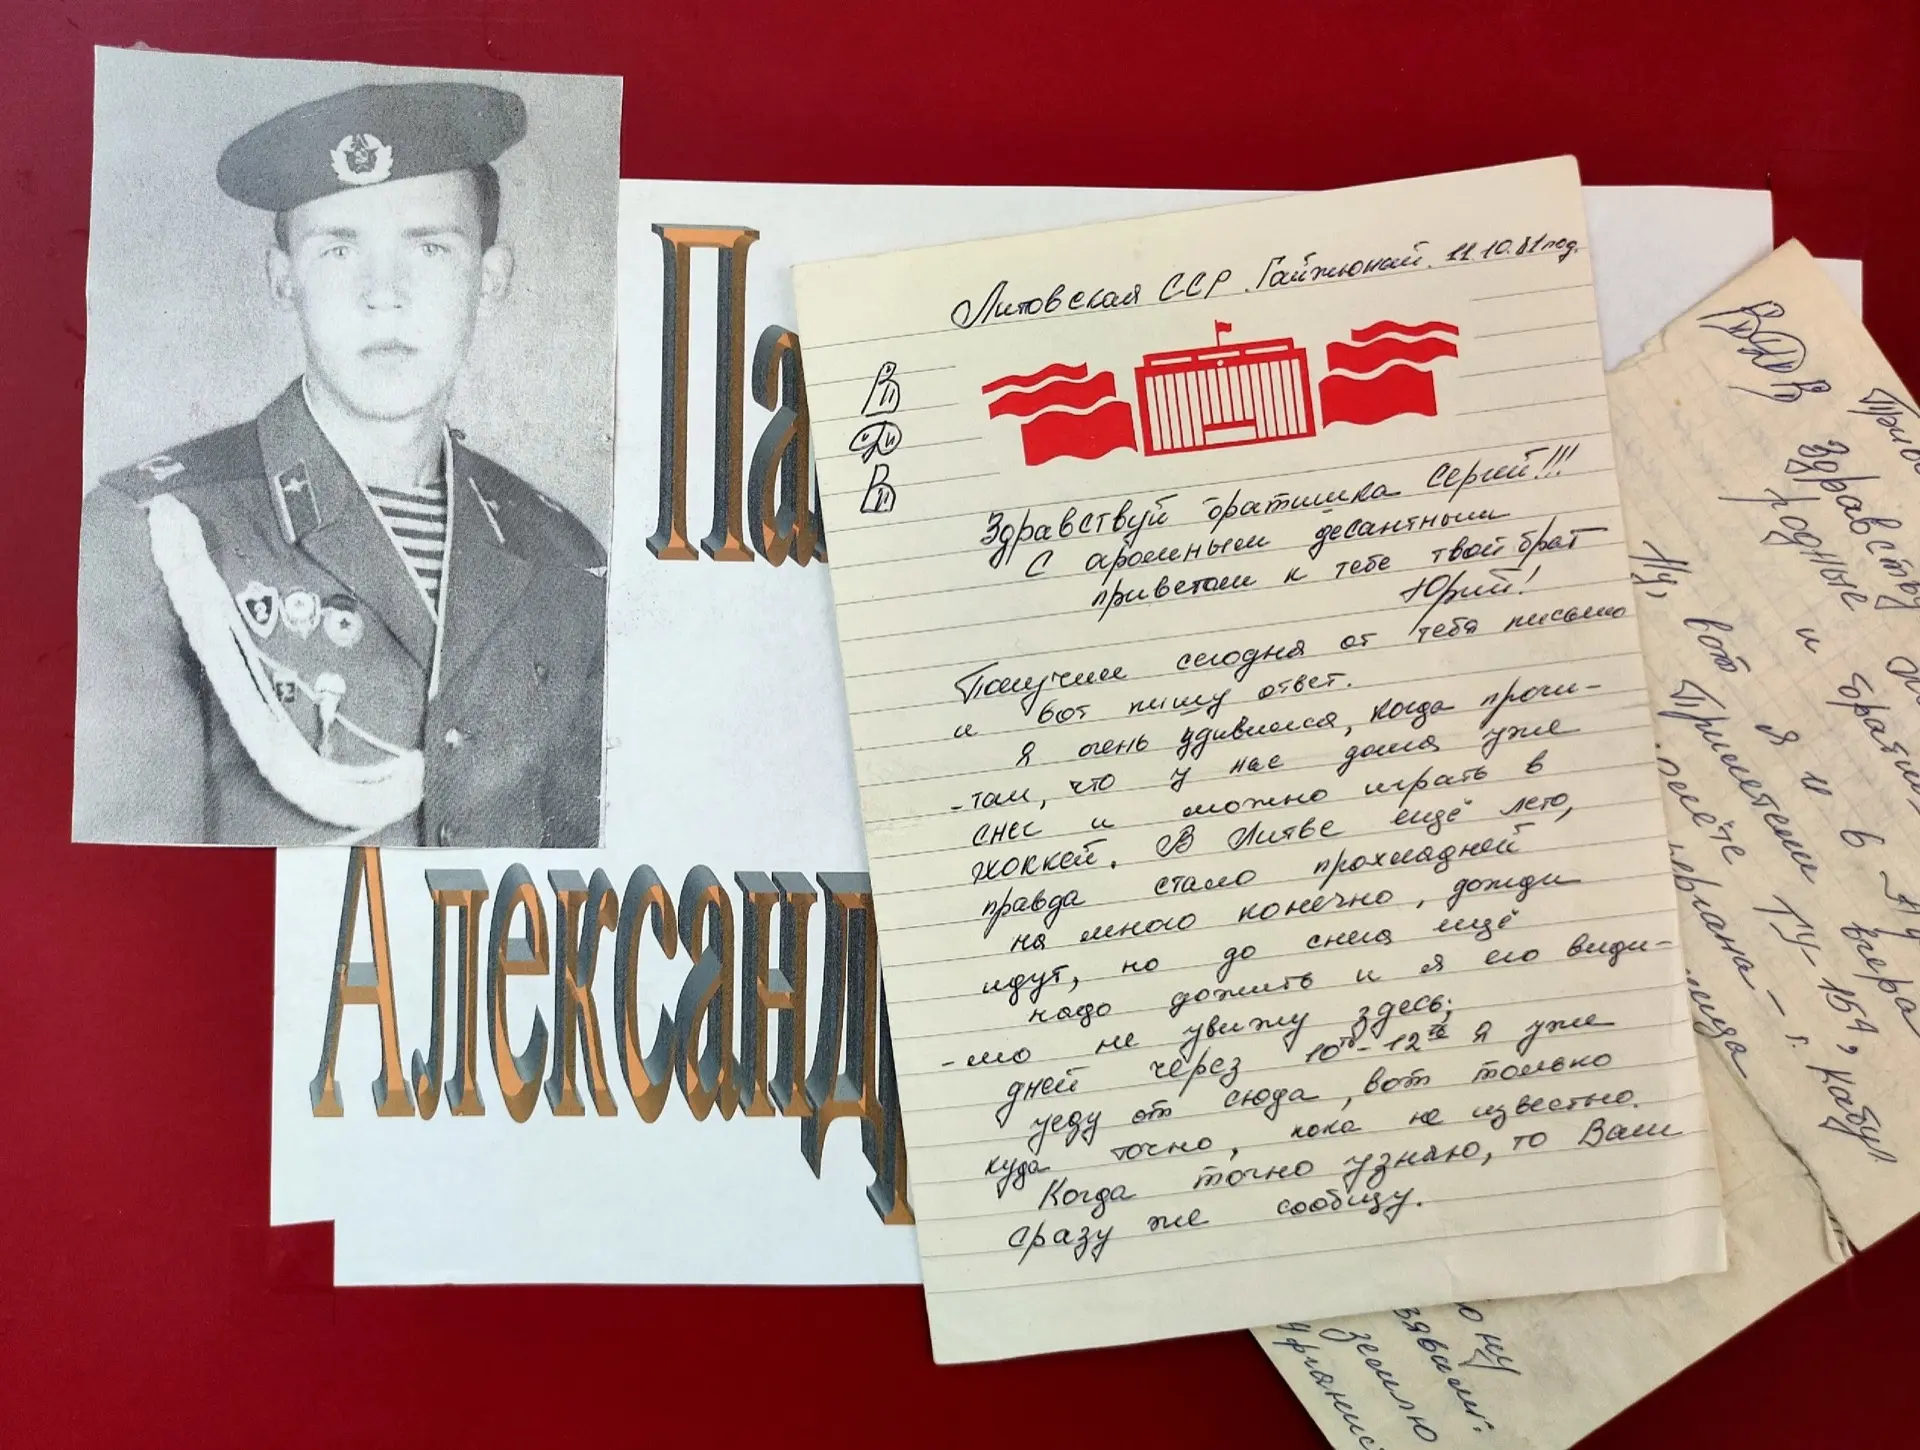 Па
Александ
Литовская ССР. Гайжюнай. 11.10.81 год.
В
Д
В
Здравствуй братишка Сергий!!!
С огромным десантным
приветом к тебе твой брат
Юрий!
Получил сегодня от тебя письмо
и вот пишу ответ.
Я очень удивился, когда прочи-
-тал, что у нас дома уже
снег и можно играть в
хоккей. В Литве ещё лето,
правда стало прохладней
на много конечно, дожди
идут, но до снега ещё
надо дожить и я его види-
-мо не увижу здесь;
дней через 10ть-12ть я уже
уеду от сюда, вот только
куда точно, пока не известно.
Когда точно узнаю, то Вам
сразу же сообщу.
ВДВ
Здравству
родные и братиш
Ну, вот я и в
вчера
Прилетели ТУ-154, Кабул
землю